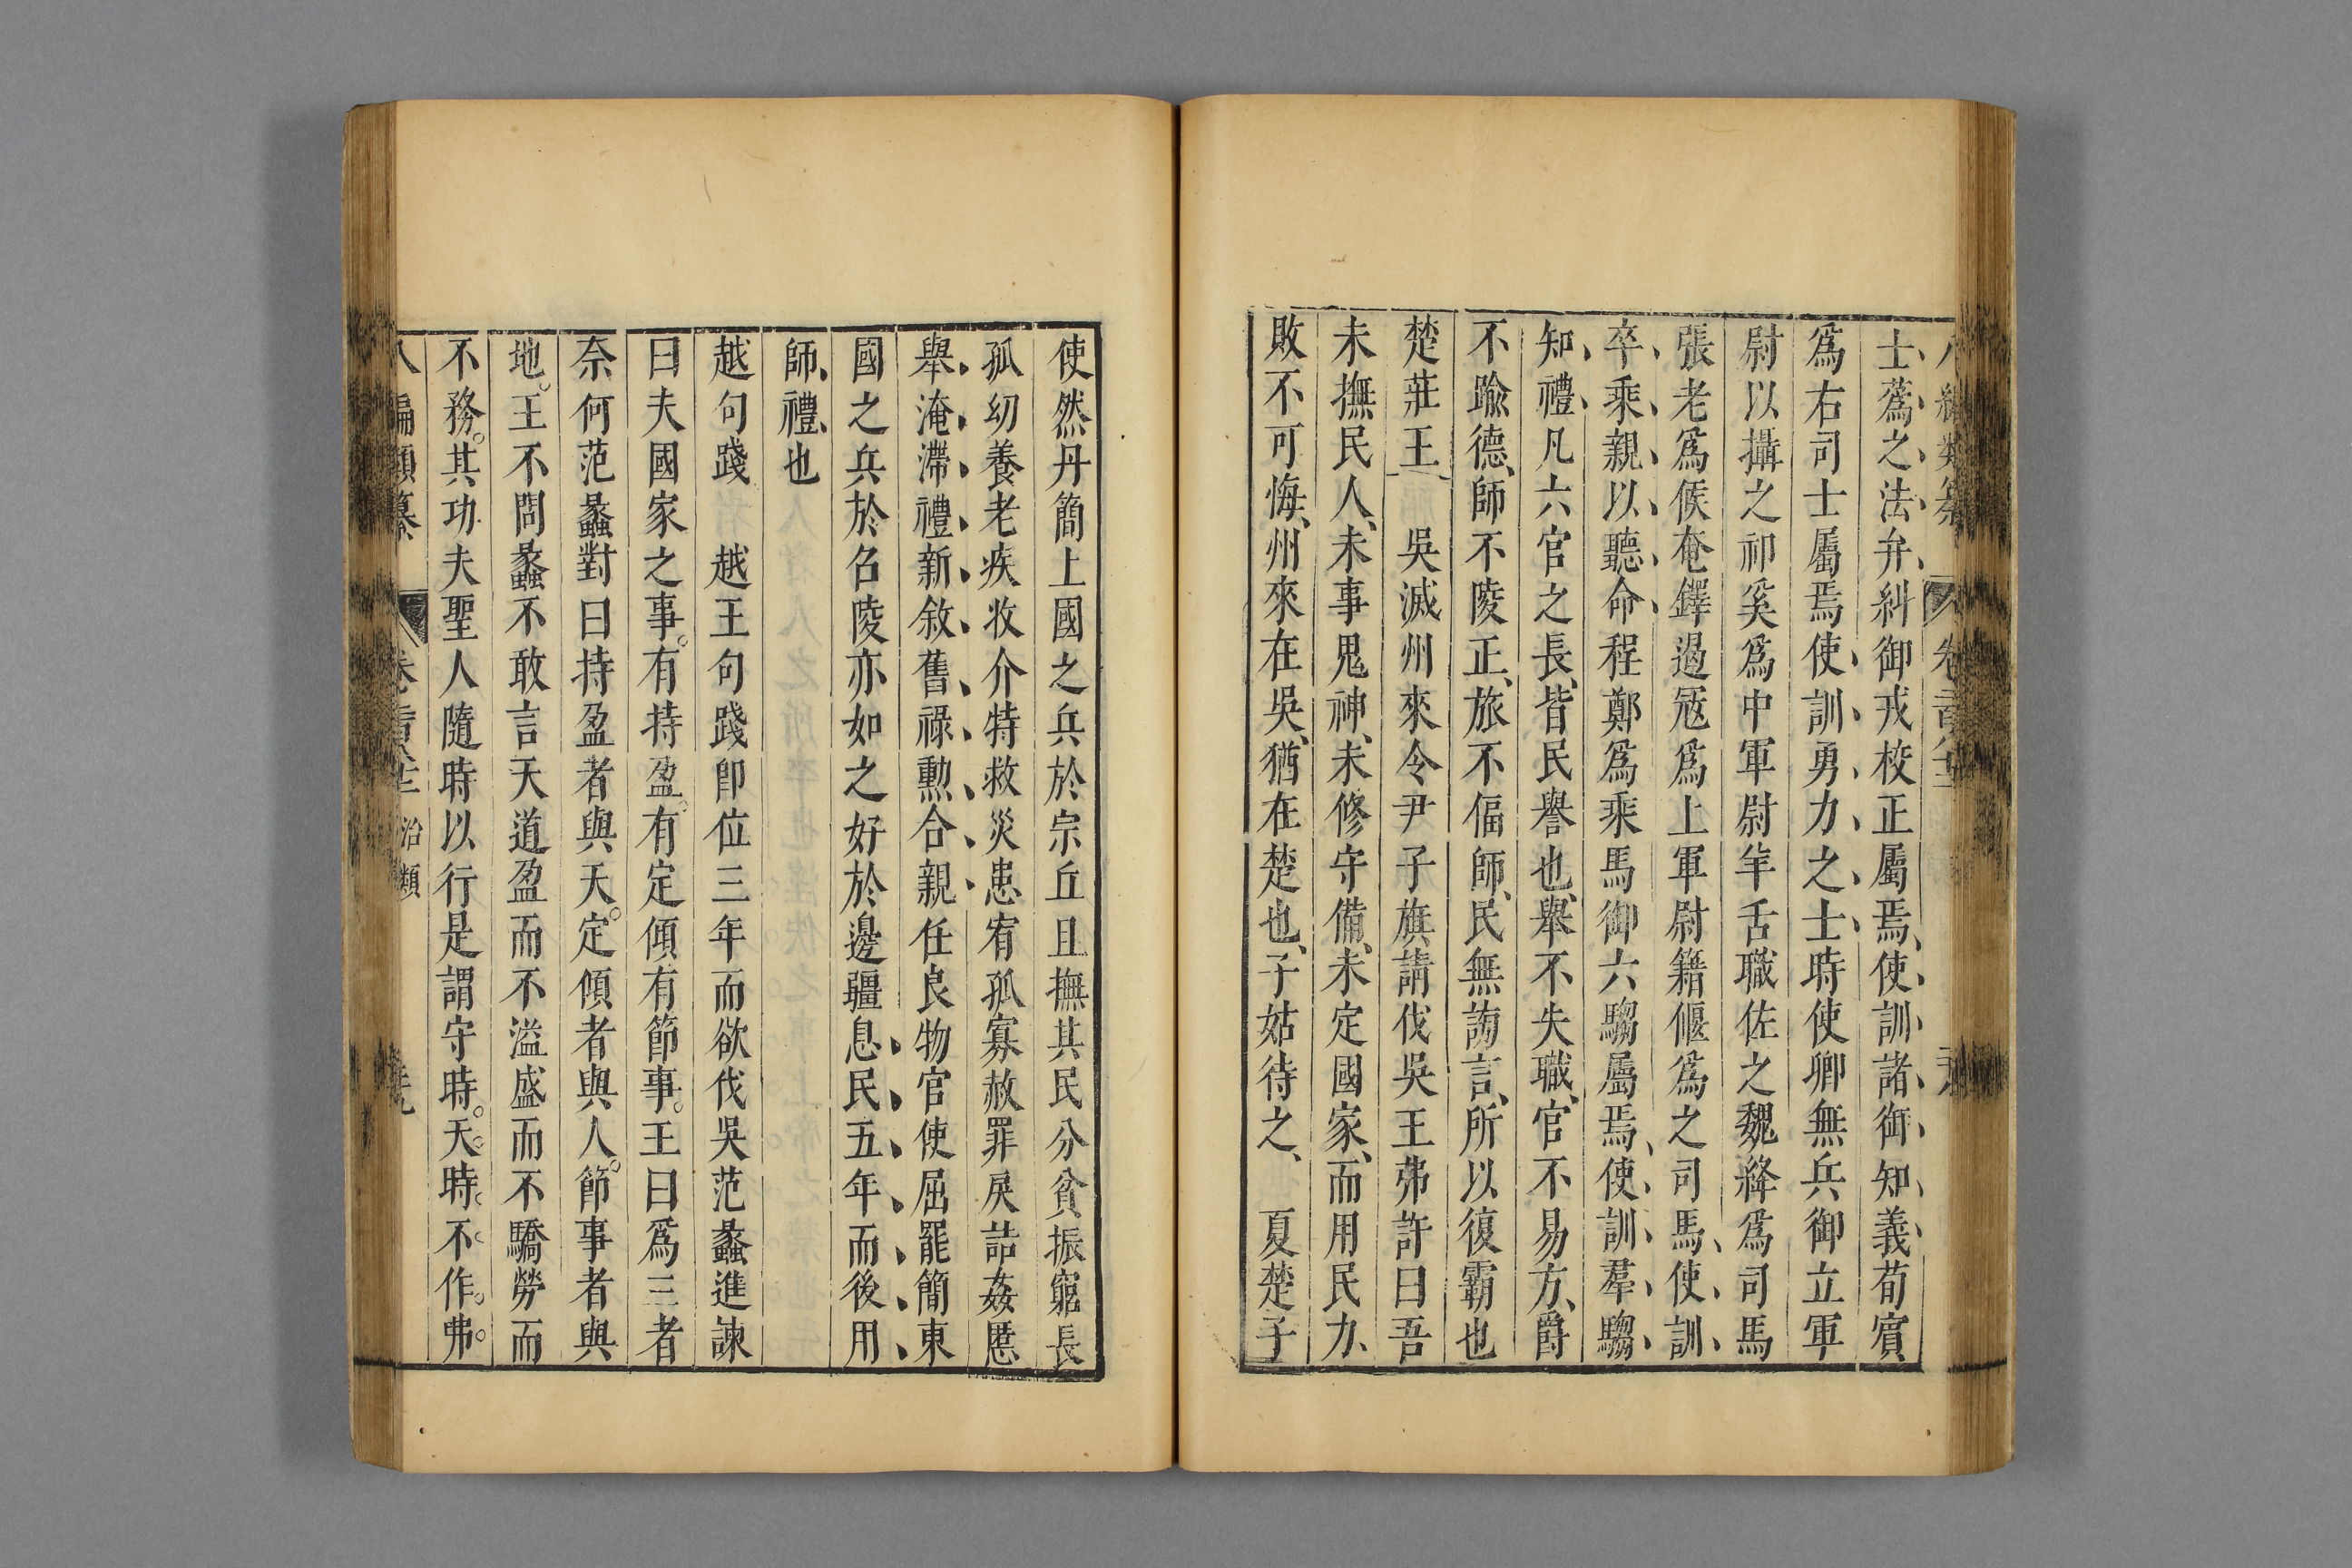 士、蒍、之、法、弁、糾御戎校正屬焉、使、訓、諸、御、知、義、荀賓
爲右司士屬焉使、訓、勇、力、之、士、時使卿無兵御立軍
尉以攝之祁奚爲中軍尉羊舌職佐之魏絳爲司馬
張老爲候奄鐸遏寇爲上軍尉籍偃爲之司馬、使、訓、
卒、乘、親、以、聽、命、程鄭爲乘馬御六騶屬焉、使、訓、羣、騶、
知、禮、凡六官之長、皆民譽也、舉不失職、官不易方、爵
不踰德、師不陵正、旅不偪師、民無謗言、所以復霸也
楚莊王 吳滅州來令尹子旗請伐吳王弗許曰吾
未撫民人、未事鬼神、未修守備、未定國家、而用民力、
敗不可悔、州來在吳、猶在楚也、子姑待之、 夏楚子
使然丹簡上國之兵於宗丘且撫其民分貧振窮長
孤幼養老疾收介特救災患宥孤寡赦罪戾詰姦慝
舉、淹、滯、禮、新、敘、舊、祿、勲、合、親、任良物官使屈罷簡東
國之兵於召陵亦如之好於邊疆息、民、五、年、而、後、用、
師、禮、也
越句踐 越王句踐卽位三年而欲伐吳范蠡進諫
曰夫國家之事。有持盈。有定傾有節事。王曰爲三者
奈何范蠡對曰持盈者與天。定傾者與人。節事者與
地。王不問蠡不敢言天道盈而不溢盛而不驕勞而
不務。其功夫聖人隨時以行是謂守時。天。時。不。作。弗。
八編類纂 卷 治類